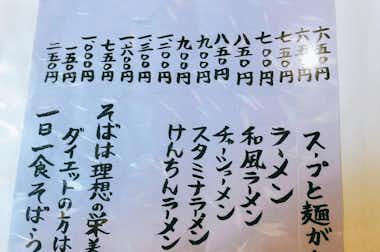 六五〇円
六五〇円
七五〇円
七〇〇円
八五〇円
八五〇円
九〇〇円
九〇〇円
一三〇〇円
一六〇〇円
七五〇円
一〇〇〇円
一五〇円
二五〇円
スープと麺が
ラーメン
和風ラーメン
チャーシューメン
スタミナラーメン
けんちんラーメン
そばは理想の栄
ダイエットの方は
一日一食そば・う